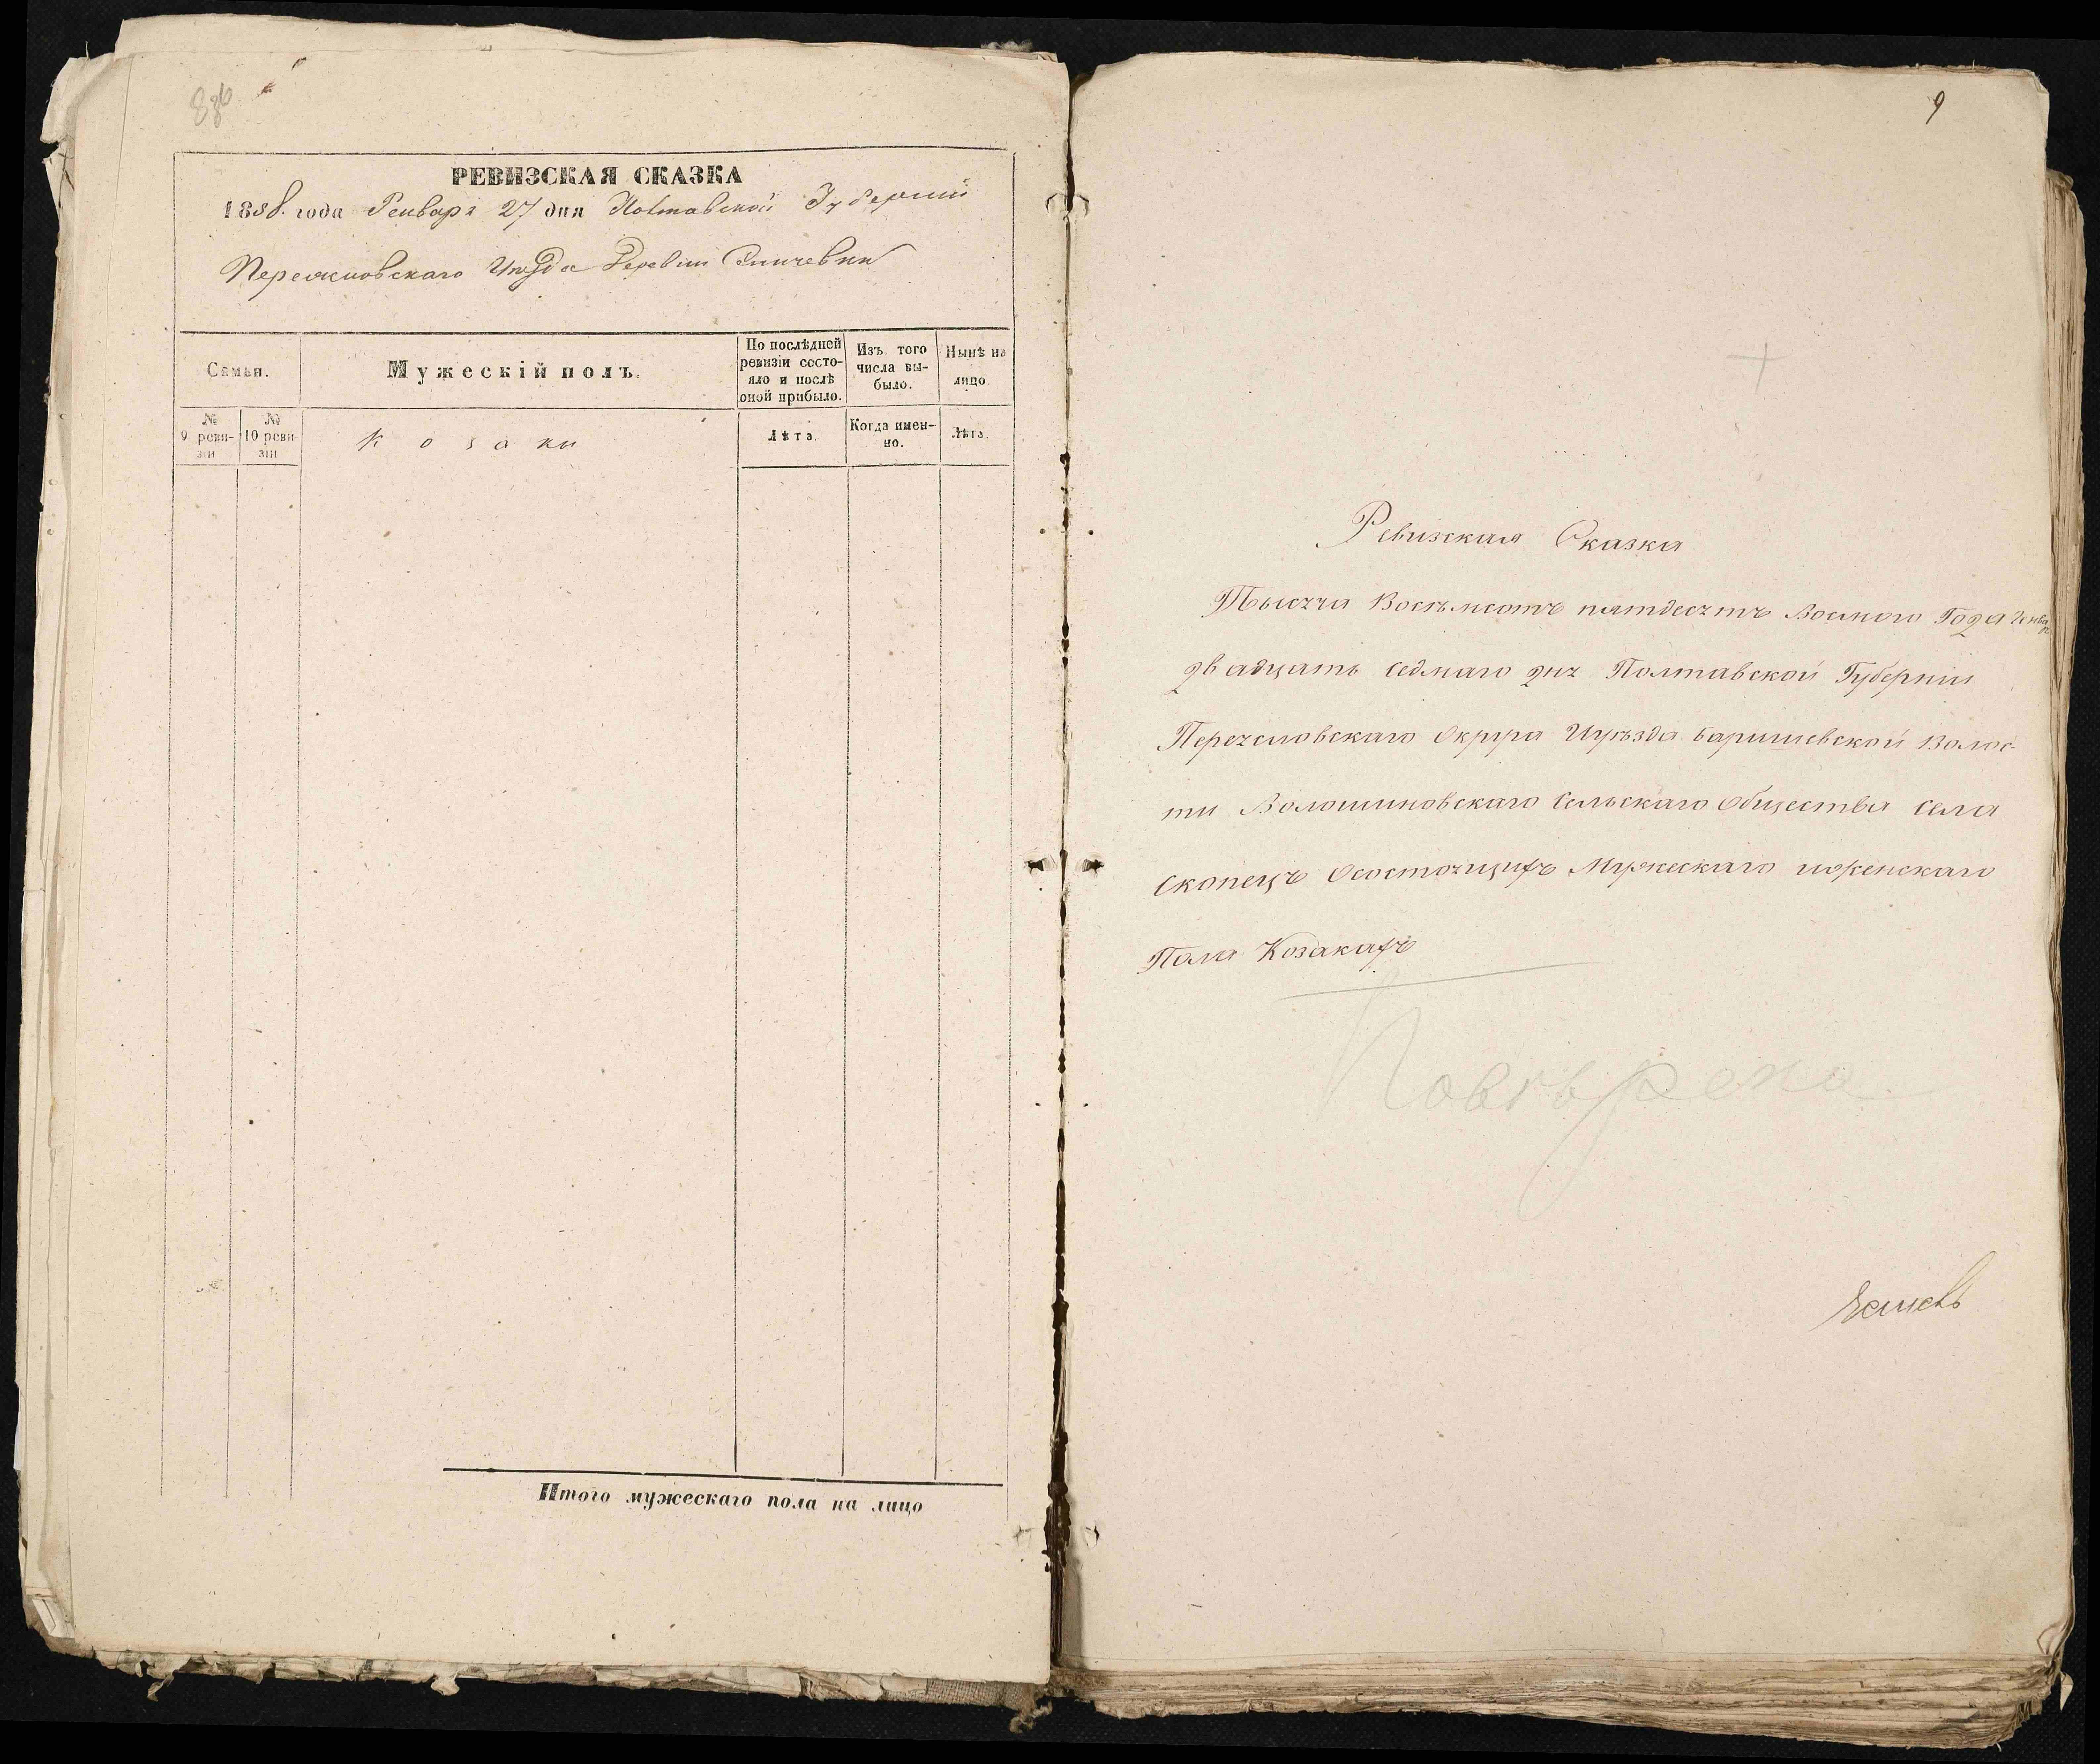 РЕВИЗСКАЯ СКАЗКА
1858. года Генваря 27 дня Полтавской Губернии
Переяловскаго Уѣзда Деревни Сеничевки
Семьи.
Мужескій полъ.
По послѣдней ревизіи состо-
яло и послѣ
оной прибыло.
Изъ того
числа вы-
было.
Нынѣ на
лицо.
№
9 реви-
зіи
№
10 реви
зіи
Козаки
Лѣта.
Когда имен-
но.
Лѣта.
Итого мужескаго пола на лицо
9
Ревизская Сказка
Тысяча Восѣмсотъ пятдесятъ Восмого Года Генваря
двадцать седмаго дня Полтавской Губернии
Переяславскаго Округа Иуѣзда Баришевской Волос-
ти Волошиновскаго Сельскаго Общества Села
Скопецъ Осостоящихъ Мужескаго иженскаго
Пола Козакахъ
Повѣрено